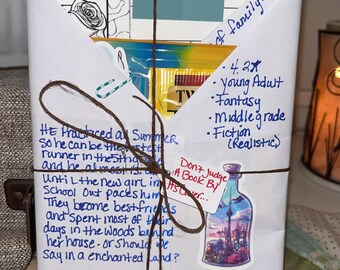 of family
• 4.2★
• Young Adult
• Fantasy
• Middle grade
• Fiction
(Realistic)
HE Practiced all Summer
so he can be the fastest
runner in the
and he
Until the new girl in
School out paces him
They become best friends
and spent most of their
days in the woods behind
her house - or should we
say in a enchanted land?
Don't Judge
A Book By
Its Cover...